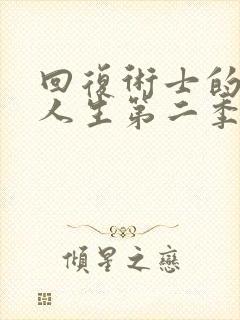 回復術士的
人生第二季
傾星之戀